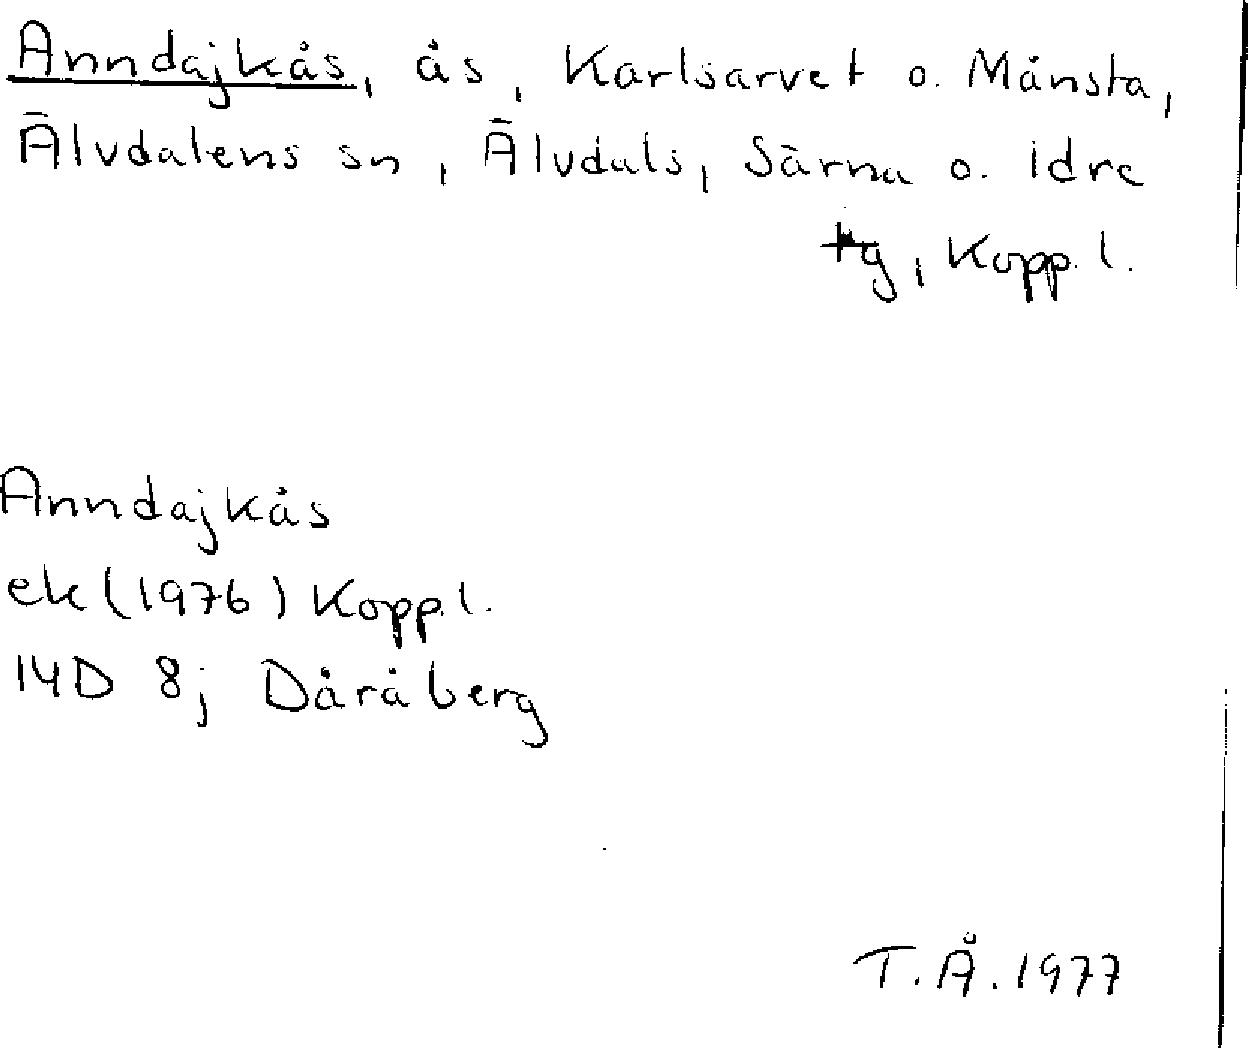 Anndajkås, ås, Karlsarvet o. Månsta,
Älvdalens sn, Älvdals, Särna o. Idre
tg, Kopp. l.
Anndajkås
ek (1976) Kopp. l.
14D 8j Dåråberg
T.Å. 1977